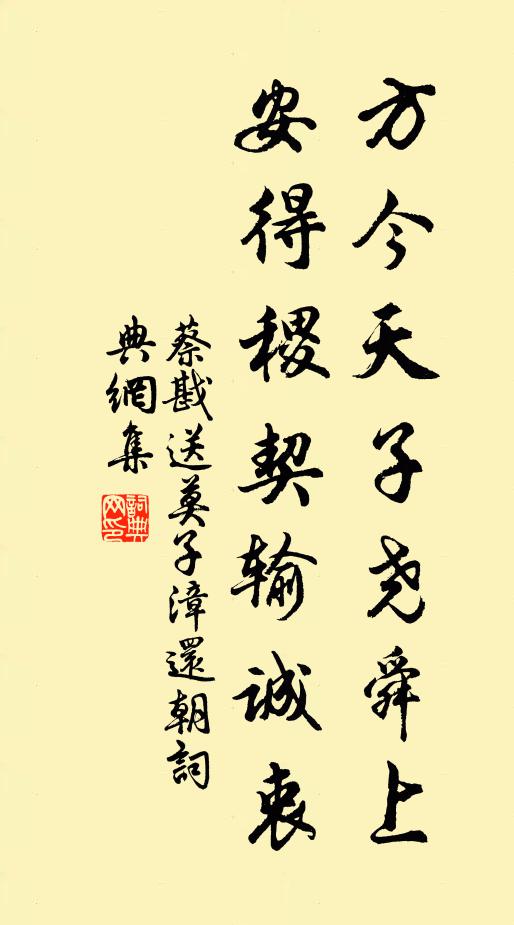 方今天子尧舜上
安得稷契输诚衷
蔡戡送莫子漳還朝詞
典網集
詞典網印